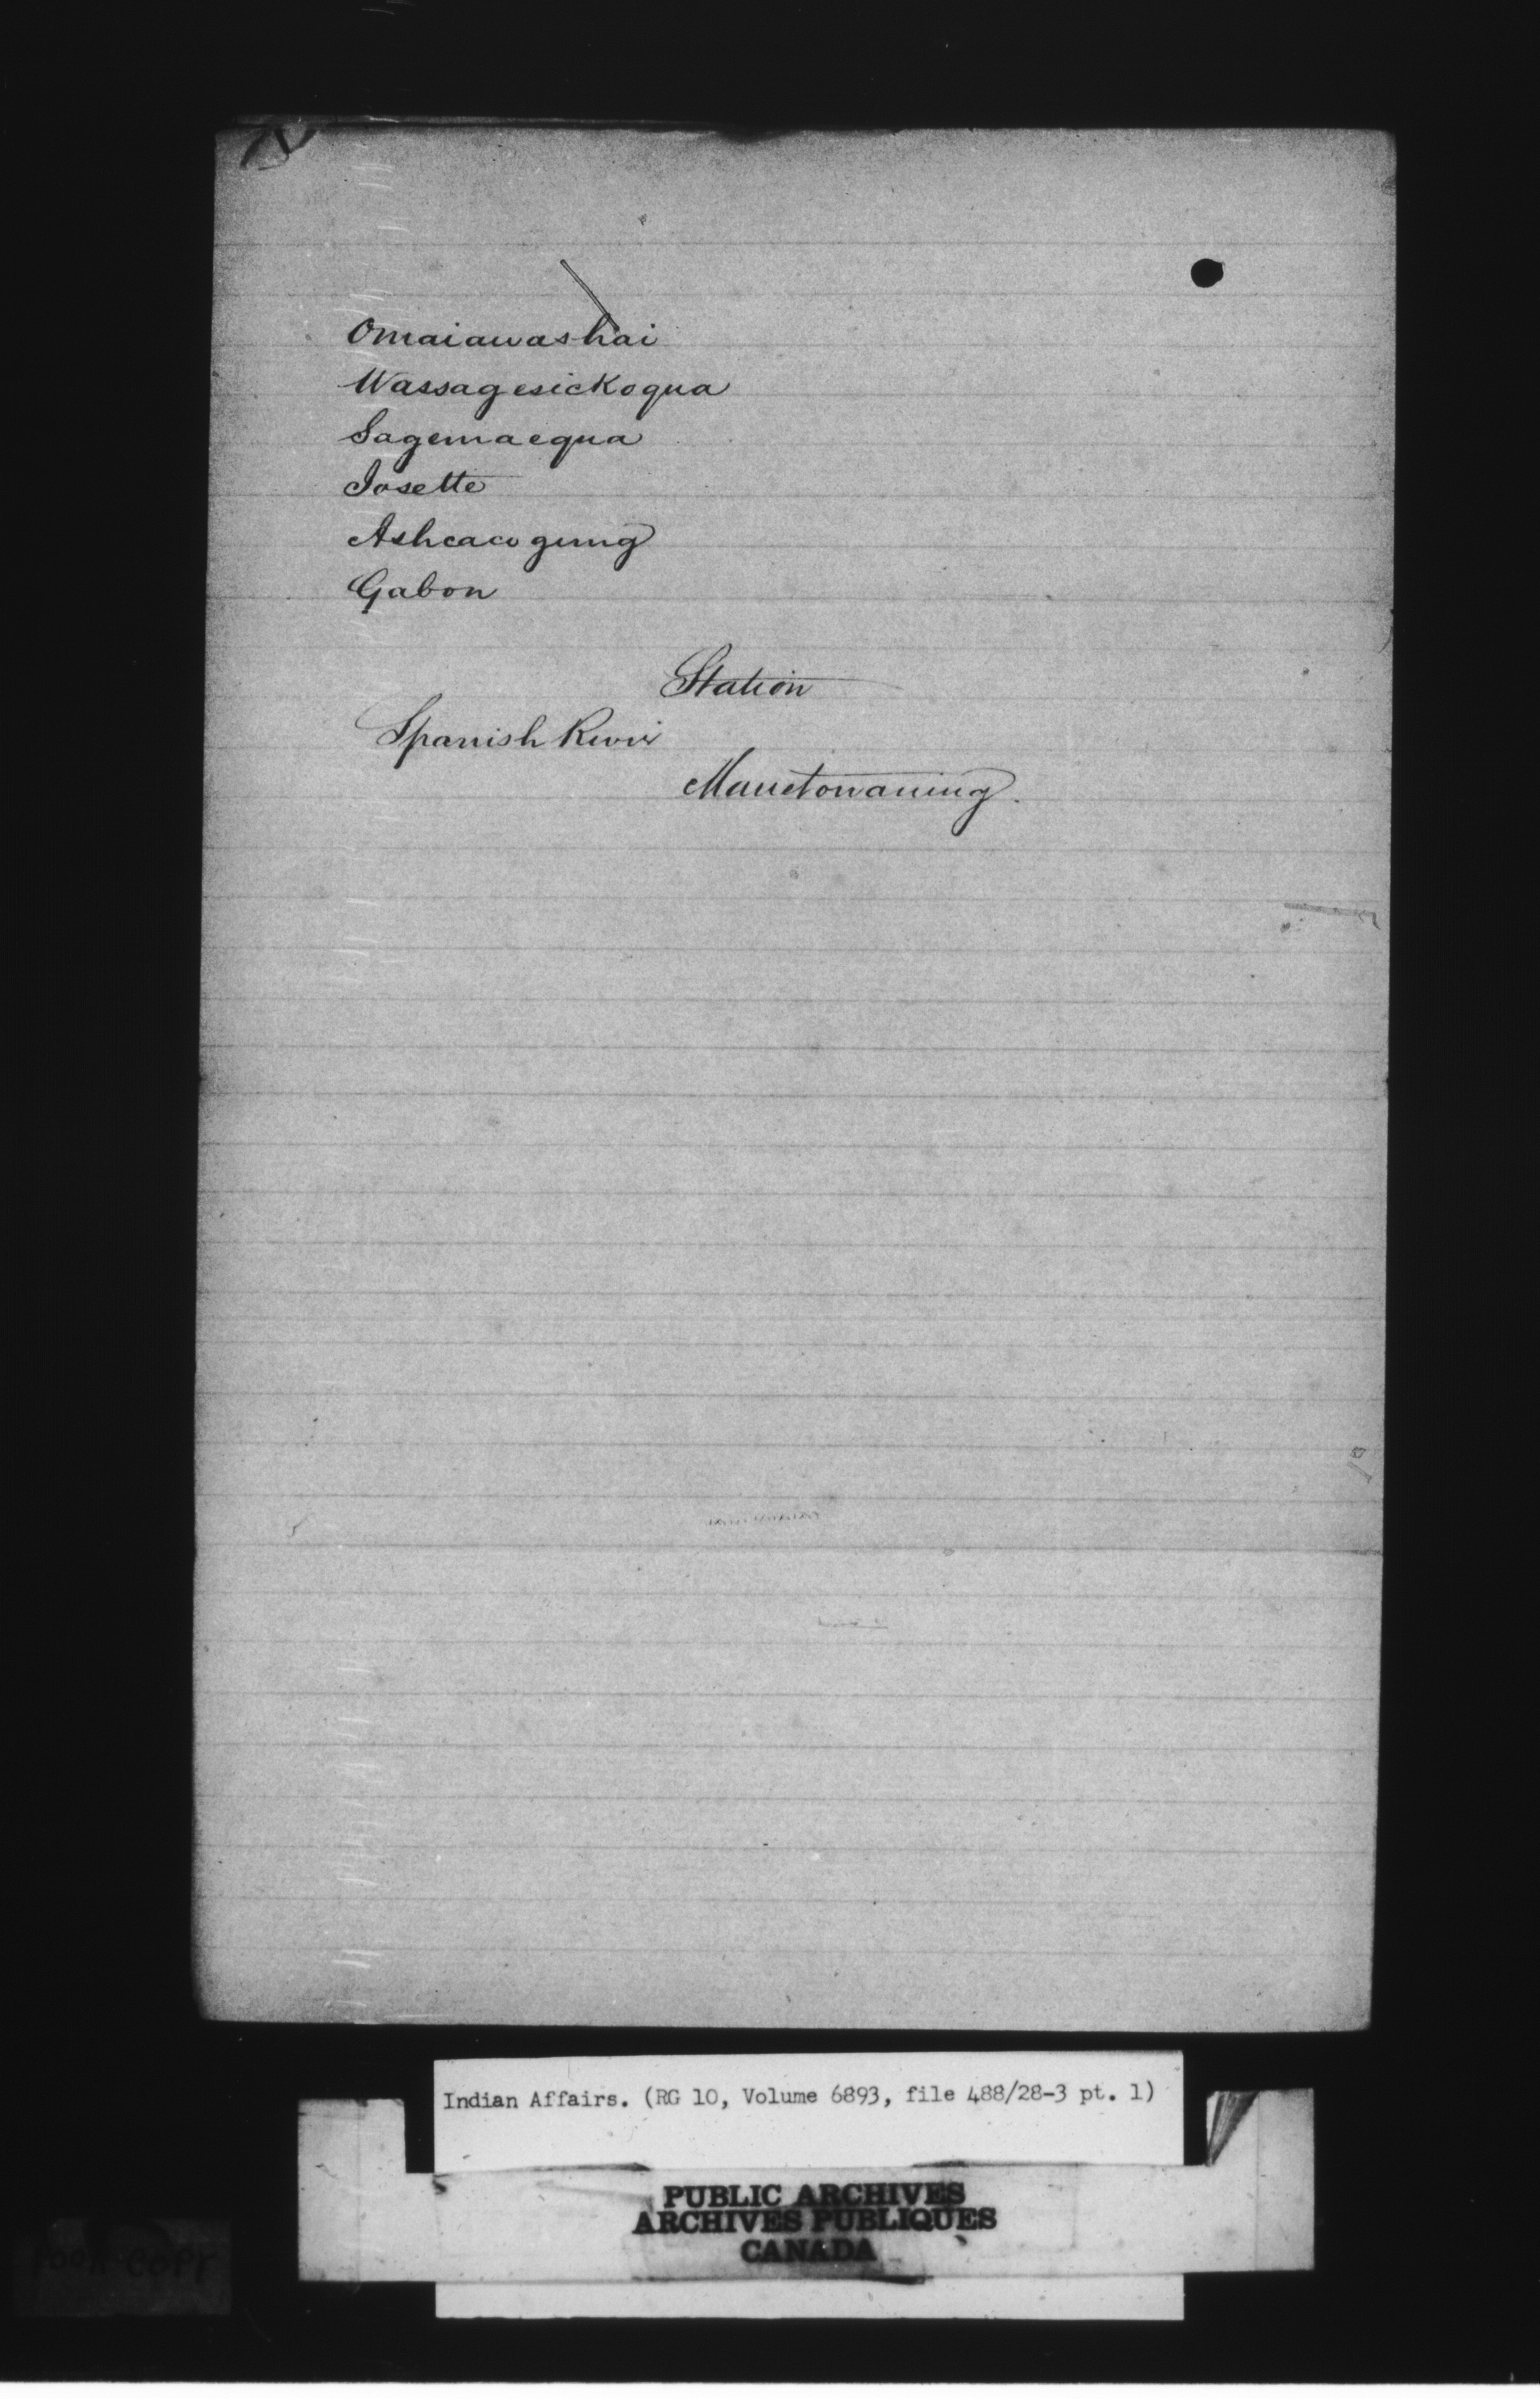 Omaiawashai
Wassagesickoqua
Sagemaequa
Josette
Ashcacogung
Gabon
Station
Spanish River
Manetowaning.
Indian Affairs. (RG 10, Volume 6893, file 488/28-3 pt. 1)
PUBLIC ARCHIVES
ARCHIVES PUBLIQUES
CANADA
POOR COPY